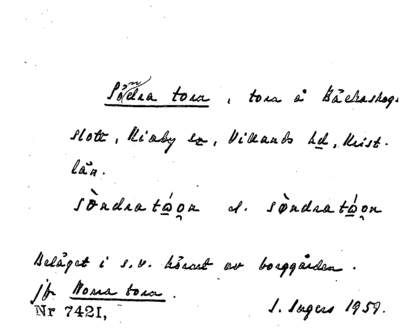 Södra tora, tora å Bäckaskogs
slott, Kiaby sn, Villands hd, Krist.
län.
sö̀ndra tó̱o̯n el. sø̀ndra tó̱o̯n
Beläget i s.v. hörnet av borggården.
jfr Norra tora.
Nr 7421, S. Ingers 1959.